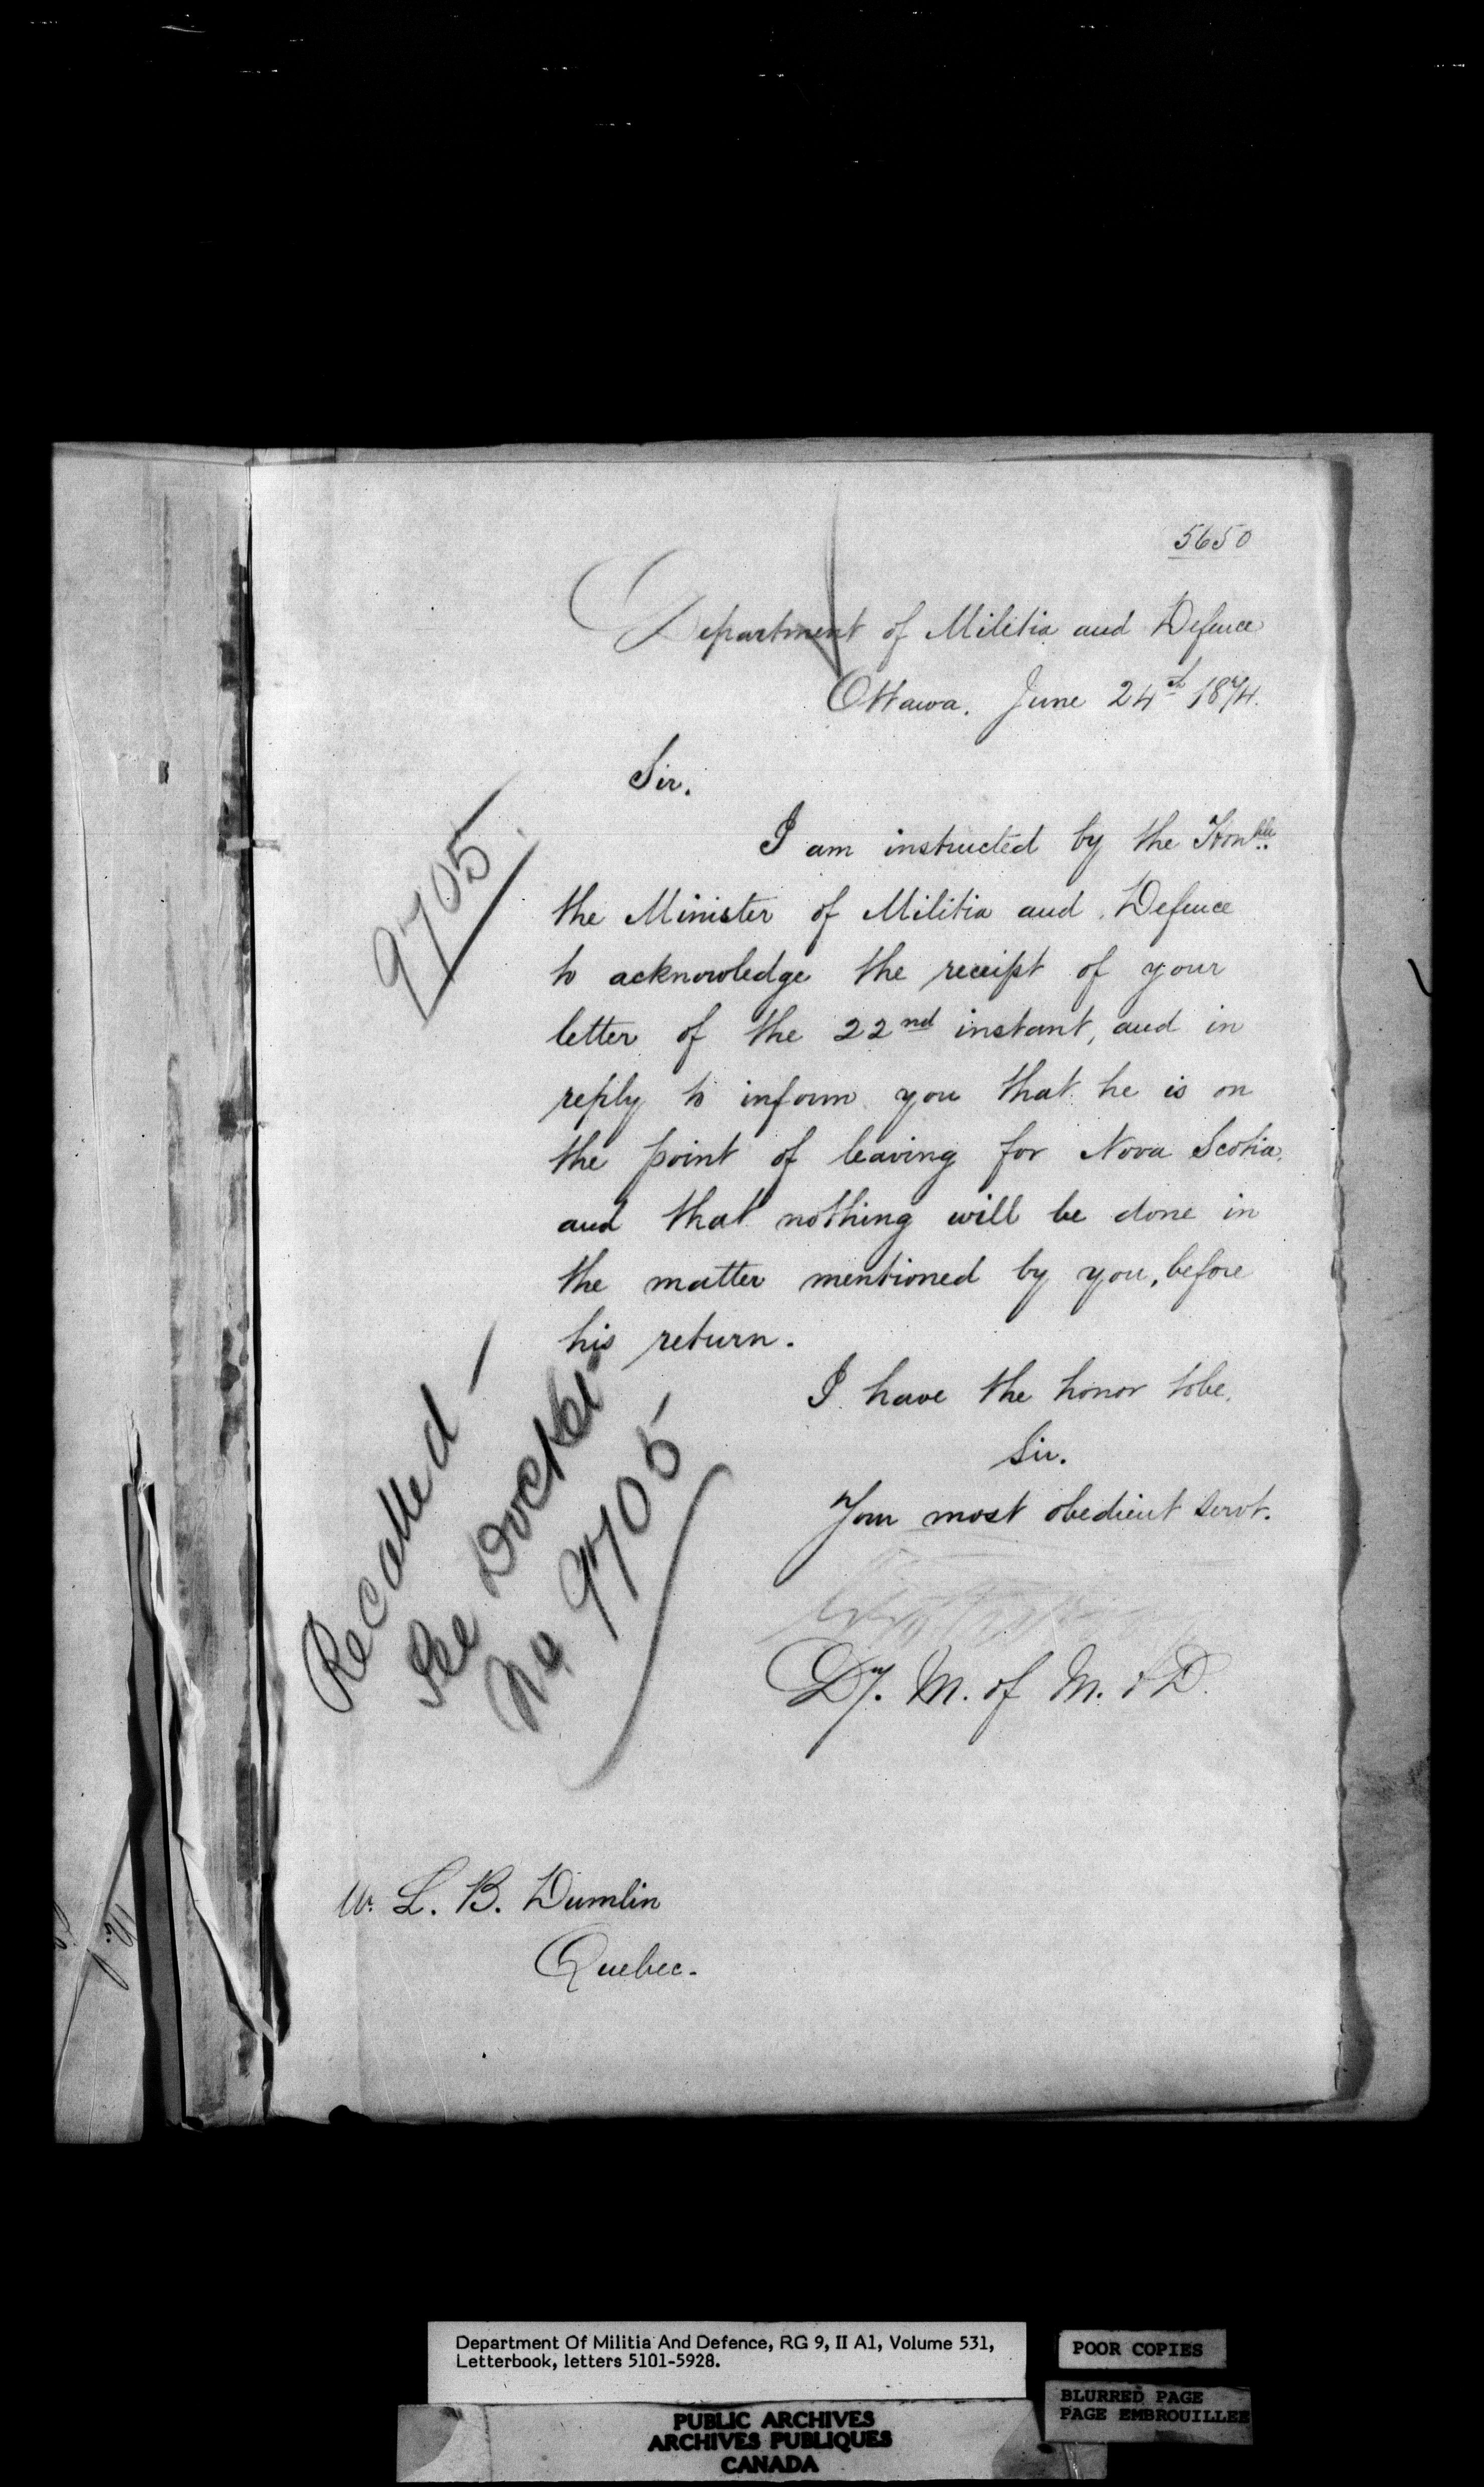 5650
Department of Militia and Defence
Ottawa. June 24th 1874.
Sir.
9705
I am instructed by the Honble
the Minister of Militia and Defence
to acknowledge the receipt of your
letter of the 22nd instant, and in
reply to inform you that he is on
the point of leaving for Nova Scotia,
and that nothing will be done in
the matter mentioned by you, before
his return.
I have the honor to be,
Sir.
Your most obedient servt.
Dy. M. of M. & D.
Recalled
See Docket
No 9705
L. B. Dumlin
Quebec.
Department Of Militia And Defence, RG 9, II A1, Volume 531,
Letterbook, letters 5101-5928.
POOR COPIES
BLURRED PAGE
PAGE EMBROUILLEE
PUBLIC ARCHIVES
ARCHIVES PUBLIQUES
CANADA